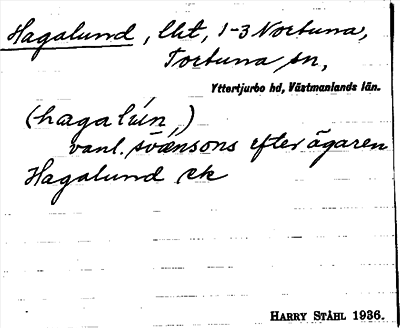 Hagalund, lht, 1-3 Nortuna,
Tortuna sn,
Yttertjurbo hd, Västmanlands län.
(hagalún,)
vanl. svænsons efter ägaren
Hagalund ek
HARRY STÅHL 1936.